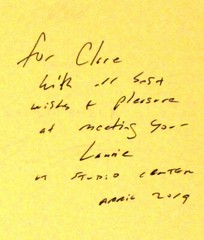 for Clare
with all best
wishes & pleasure
at meeting you—
Lannie
at STUDIO CENTER
APRIL 2019